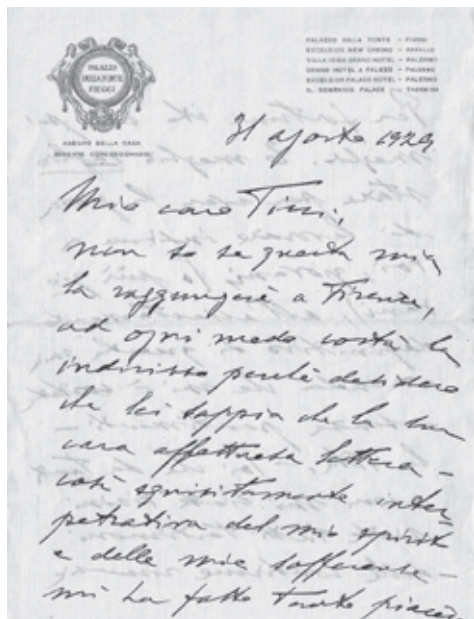 PALAZZO
DELLA FONTE
FIUGGI
PALAZZO DELLA FONTE – FIUGGI
EXCELSIOR NEW CASINO – RAPALLO
VILLA IGIEA GRAND HOTEL – PALERMO
GRAND HOTEL & PALMES – PALERMO
EXCELSIOR PALACE HOTEL – PALERMO
S. DOMENICO PALACE – TAORMINA
31 agosto 1929
Mio caro Tizzi,
non so se questa mia
la raggiungerà a Firenze,
ad ogni modo costà la
indirizzo perché desidero
che lei sappia che la sua
cara affettuosa lettera –
così squisitamente inter-
petrativa del mio spirito
e delle mie sofferenze –
mi ha fatto tanto piacere